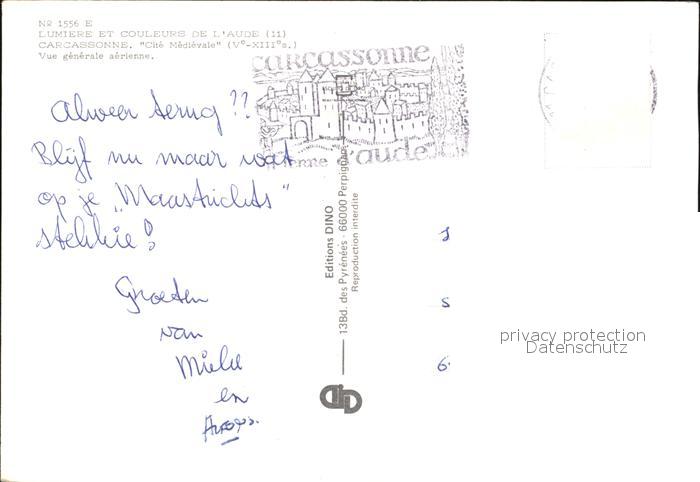 Nº 1556 E
LUMIERE ET COULEURS DE L'AUDE (11)
CARCASSONNE. "Cité Médiévale" (Vº-XIIIºs.)
Vue générale aérienne.
carcassonne
l'aude
Alweer terug??
Blijf nu maar wat
op je „Maastrichts"
stekkie!
Groeten
van
Mieke
en
Editions DINO
13Bd. des Pyrénées - 66000 Perpignan
Reproduction interdite
privacy protection
Datenschutz